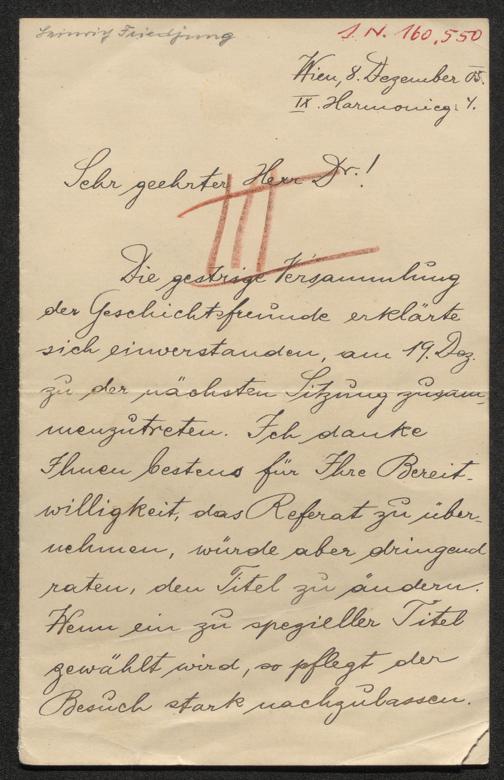 Heinrich Friedjung
J. N. 160.550
Wien, 8. Dezember 05.
IX. Harmonieg. 4.
Sehr geehrter Herr Dr.!
III
Die gestrige Versammlung
der Geschichtsfreunde erklärte
sich einverstanden, am 19. Dez.
zu der nächsten Sitzung zusam-
menzutreten. Ich danke
Ihnen bestens für Ihre Bereit-
willigkeit, das Referat zu über-
nehmen, würde aber dringend
raten, den Titel zu ändern.
Wenn ein zu spezieller Titel
gewählt wird, so pflegt der
Besuch stark nachzulassen.